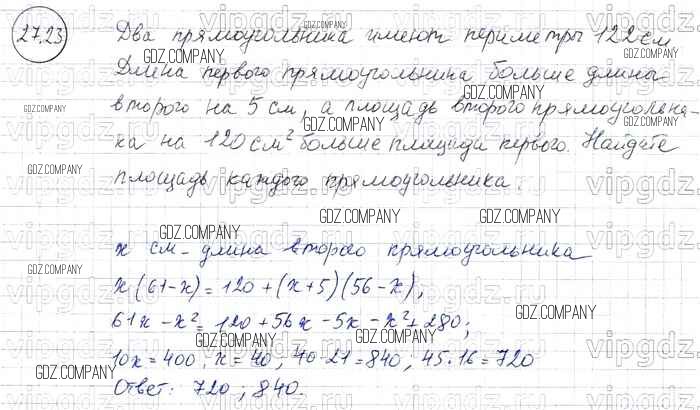 27.23
Два прямоугольника имеют периметры 122 см
GDZ.COMPANY
GDZ.COMPANY
Длина первого прямоугольника больше длины
GDZ.COMPANY
второго на 5 см, а площадь второго прямоугольни-
GDZ.COMPANY
GDZ.COMPANY
ка на 120 см² больше площади первого. Найдите
GDZ.COMPANY
GDZ.COMPANY
площадь каждого прямоугольника.
GDZ.COMPANY
GDZ.COMPANY
GDZ.COMPANY
x см - длина второго прямоугольника
GDZ.COMPANY
x(61-x)=120+(x+5)(56-x);
GDZ.COMPANY
61x-x²=120+56x-5x-x²+280;
GDZ.COMPANY
GDZ.COMPANY
10x=400; x=40; 40·21=840; 45·16=720
GDZ.COMPANY
GDZ.COMPANY
Ответ: 720; 840.
vipgdz.ru